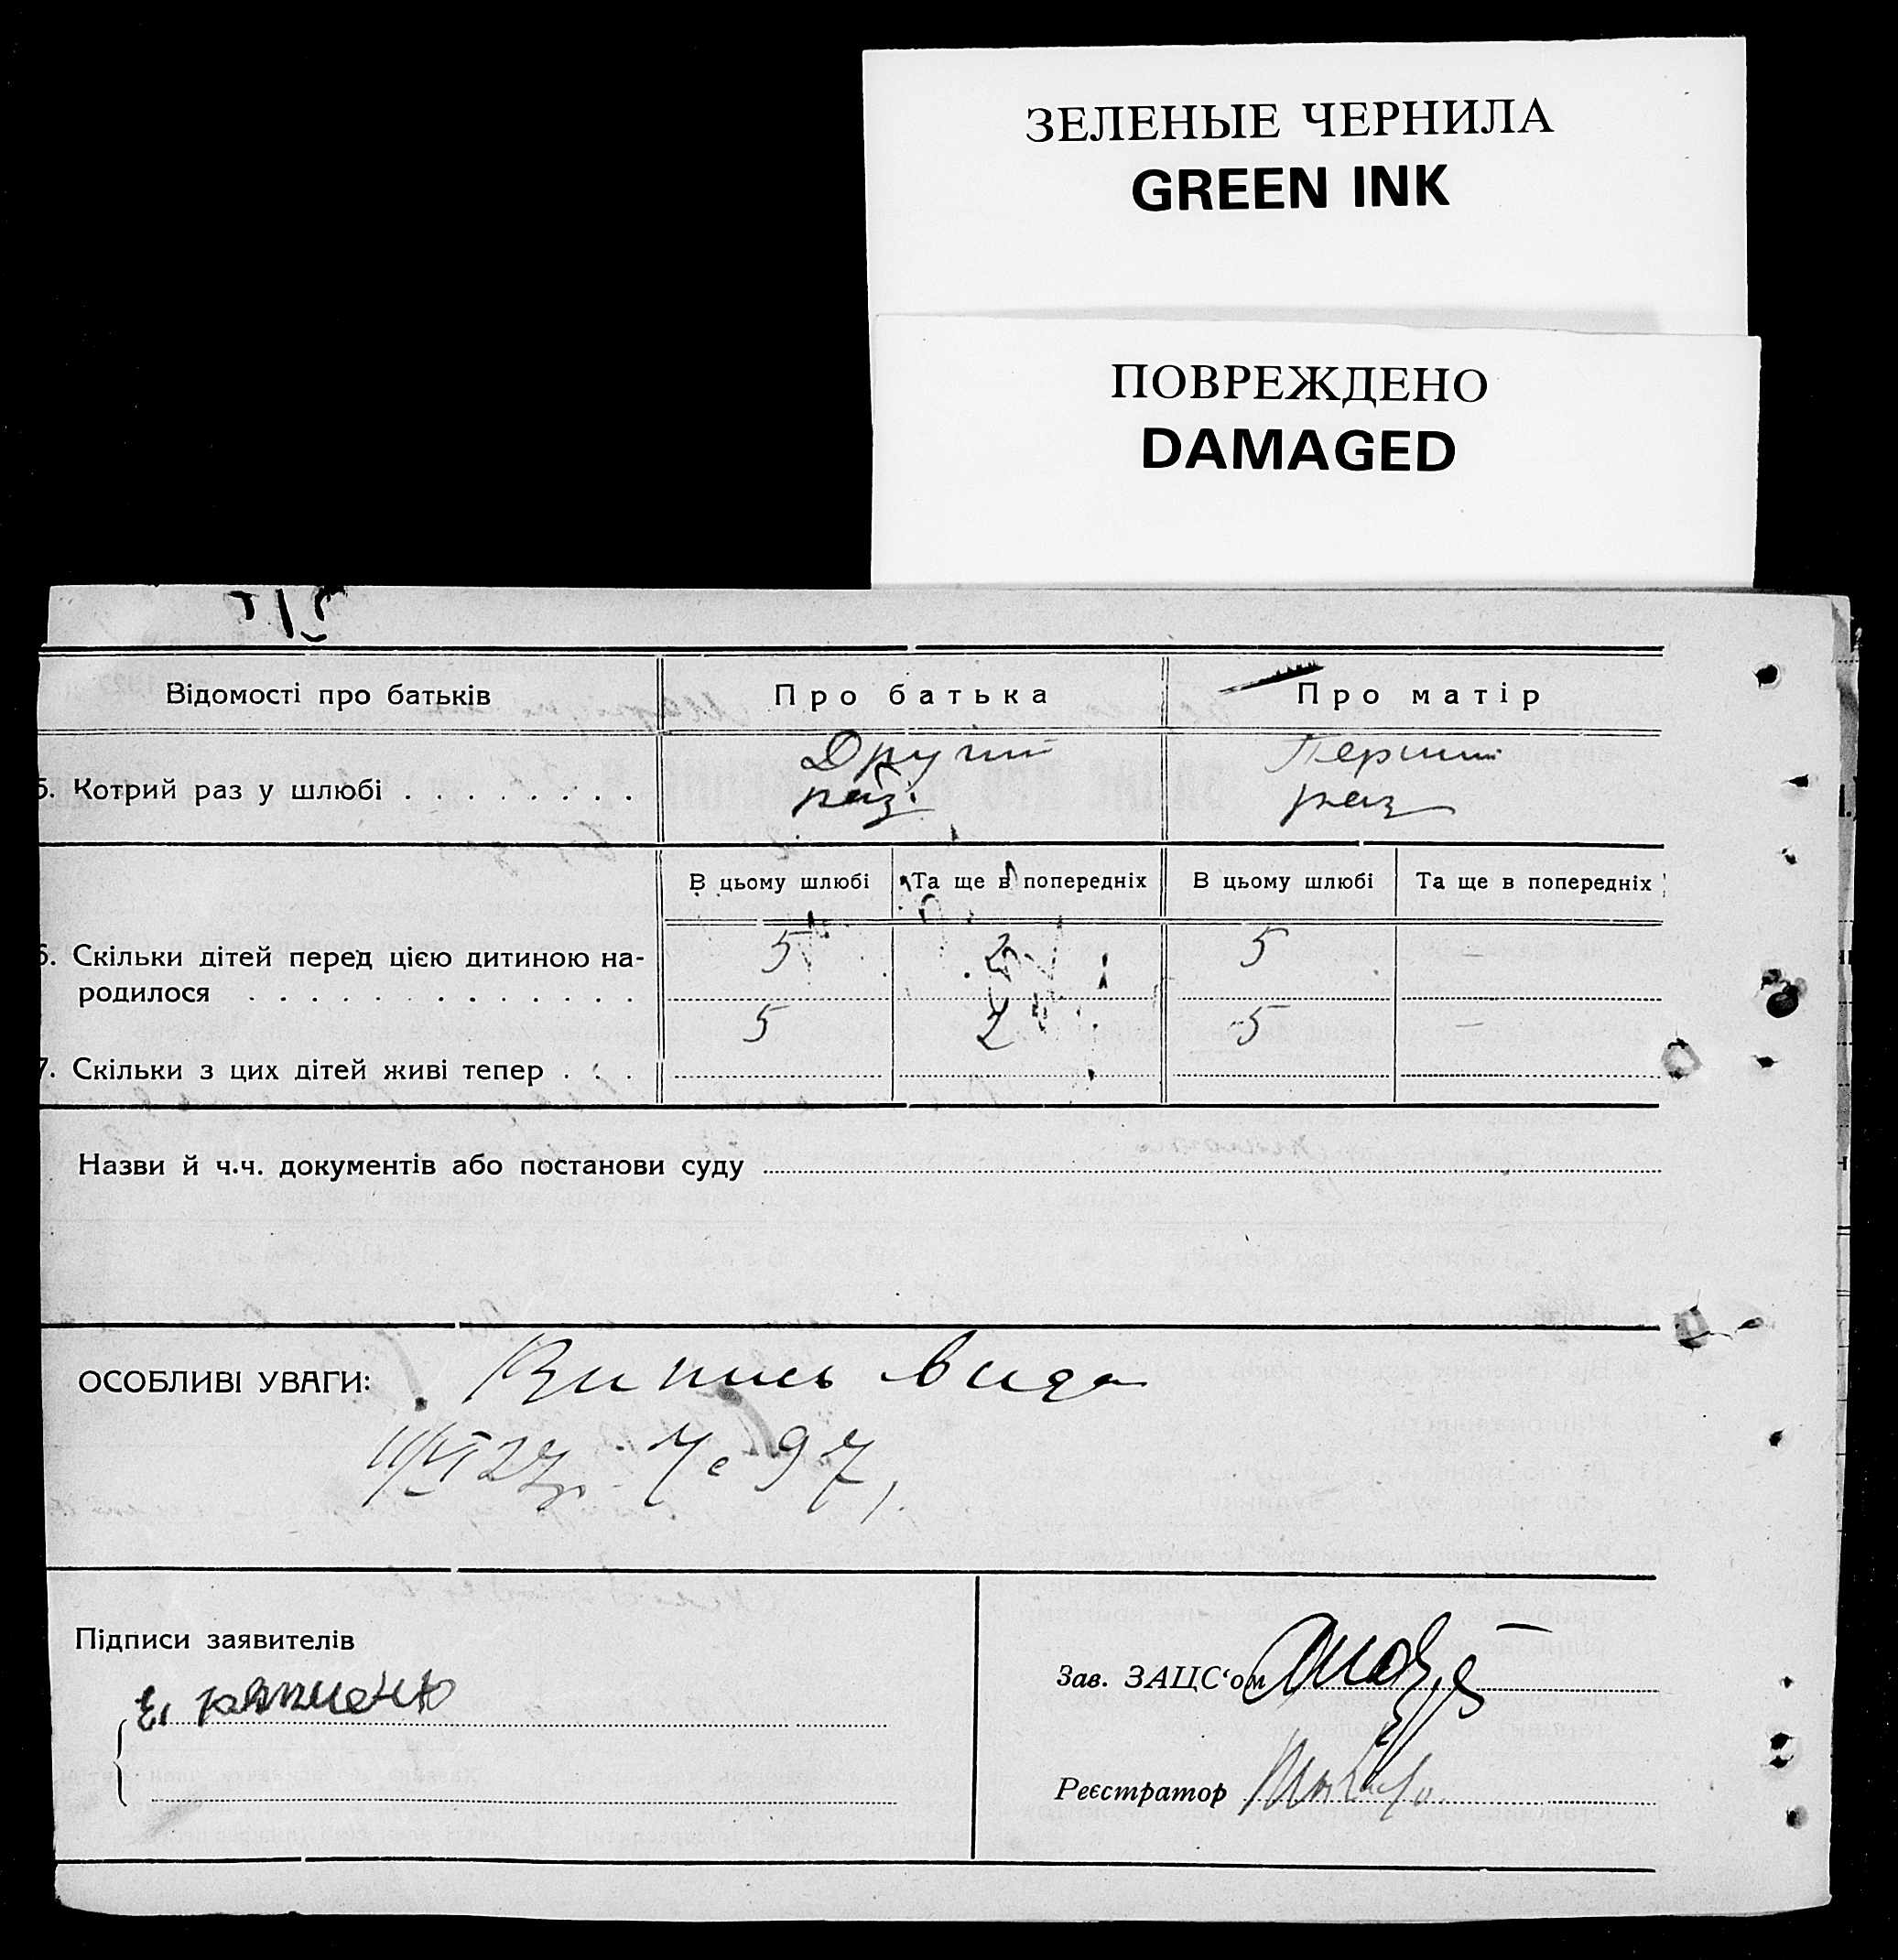 ЗЕЛЕНЫЕ ЧЕРНИЛА
GREEN INK
ПОВРЕЖДЕНО
DAMAGED
Відомості про батьків Про батька Про матір
Другий Перший
5. Котрий раз у шлюбі . . . . . . . . раз. раз
В цьому шлюбі Та ще в попередніх В цьому шлюбі Та ще в попередніх
6. Скільки дітей перед цією дитиною на- 5 2 5 —
родилося . . . . . . . . . . . . .
5 2 5 —
7. Скільки з цих дітей живі тепер . . .
Назви й ч.ч. документів або постанови суду
ОСОБЛИВІ УВАГИ: Випись вида
11/VI 27р. 97
Підписи заявителів
Зав. ЗАЦС‘ом
Реєстратор